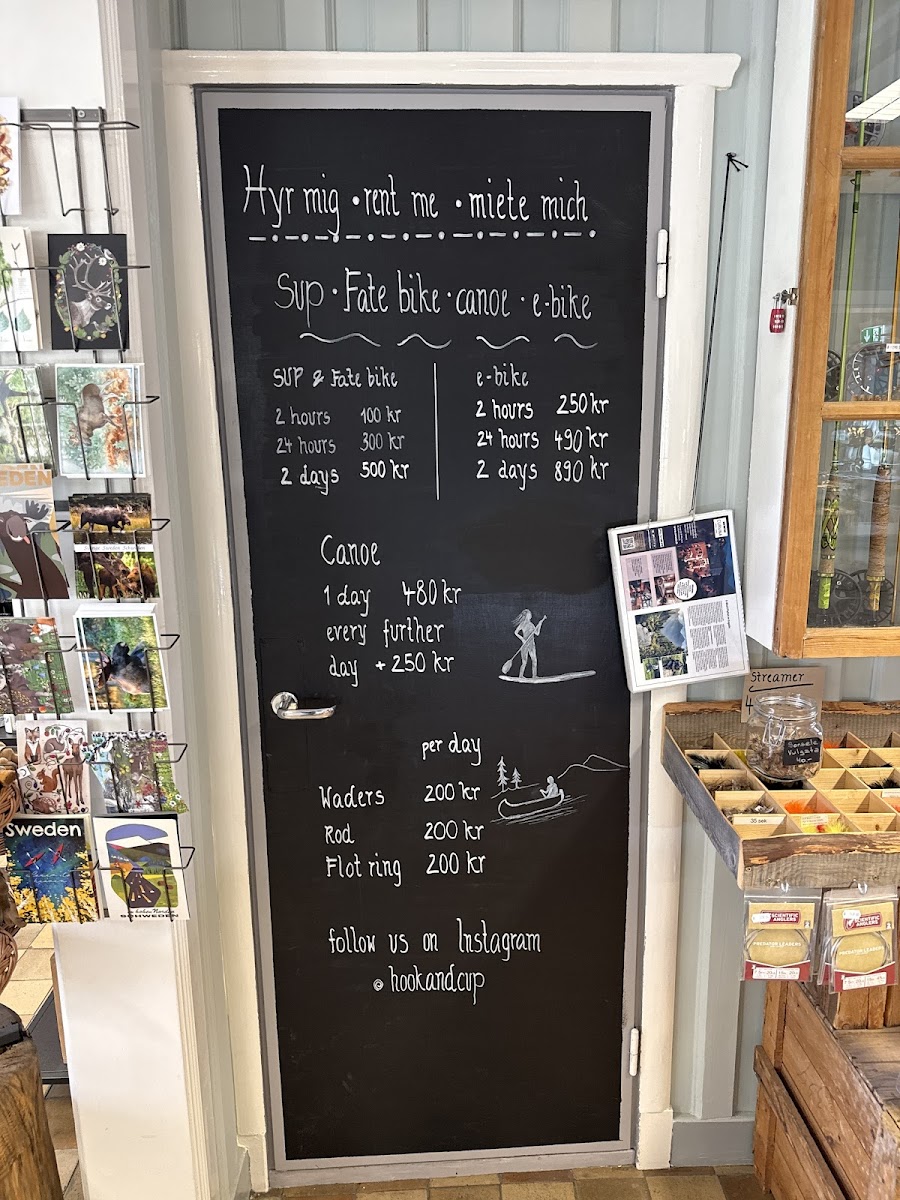 Hyr mig • rent me • miete mich
Sup • Fate bike • canoe • e-bike
SUP & Fate bike
2 hours 100 kr
24 hours 300 kr
2 days 500 kr
e-bike
2 hours 250 kr
24 hours 490 kr
2 days 890 kr
Canoe
1 day 480 kr
every further
day + 250 kr
per day
Waders 200 kr
Rod 200 kr
Flot ring 200 kr
follow us on Instagram
@ hookandcup
Sweden
SCHWEDEN
Streamer
35 sek
SCIENTIFIC
ANGLERS
PREDATOR LEADERS
SCIENTIFIC
ANGLERS
PREDATOR LEADERS